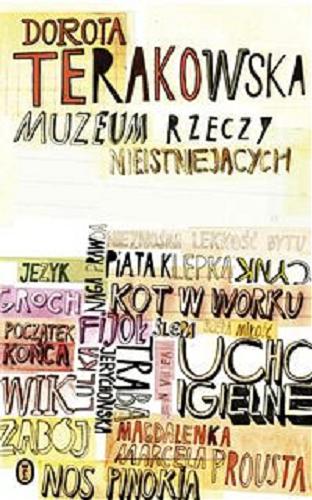 DOROTA
TERAKOWSKA
MUZEUM RZECZY
NIEISTNIEJĄCYCH
NIEZNOŚNA LEKKOŚĆ BYTU
NAGA PRAWDA
JĘZYK
PIĄTA KLEPKA
CYNK
GROCH
KOT W WORKU
POCZĄTEK
KOŃCA
FIJOŁ
ŚLEPA
MIŁOŚĆ
LULKA
TRĄBA
JERYCHOŃSKA
UCHO
IGIELNE
WIK
ZABÓJ
MAGDALENKA
MARCELA PROUSTA
NOS PINOKIA